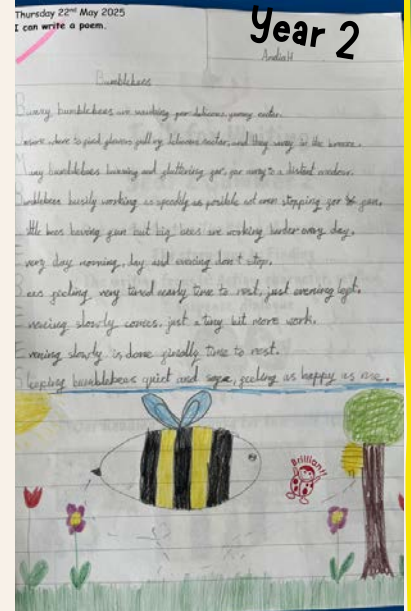 Thursday 22nd May 2025
I can write a poem.
Year 2
Bumblebees
bumblebees are searching for delicious, yummy nectar.
to find flowers full of delicious nectar, and they sway in the breeze.
bumblebees buzzing and fluttering far, far away to a distant meadow.
Bumblebees busily working as speedily as possible not even stopping for fun.
Little bees having fun but big bees are working harder every day.
Every day morning, day and evening don't stop.
Bees feeling very tired nearly time to rest, just evening left.
Evening slowly comes, just a tiny bit more work.
Evening slowly is done finally time to rest.
Sleeping bumblebees quiet and safe, feeling as happy as me.
Brilliant!